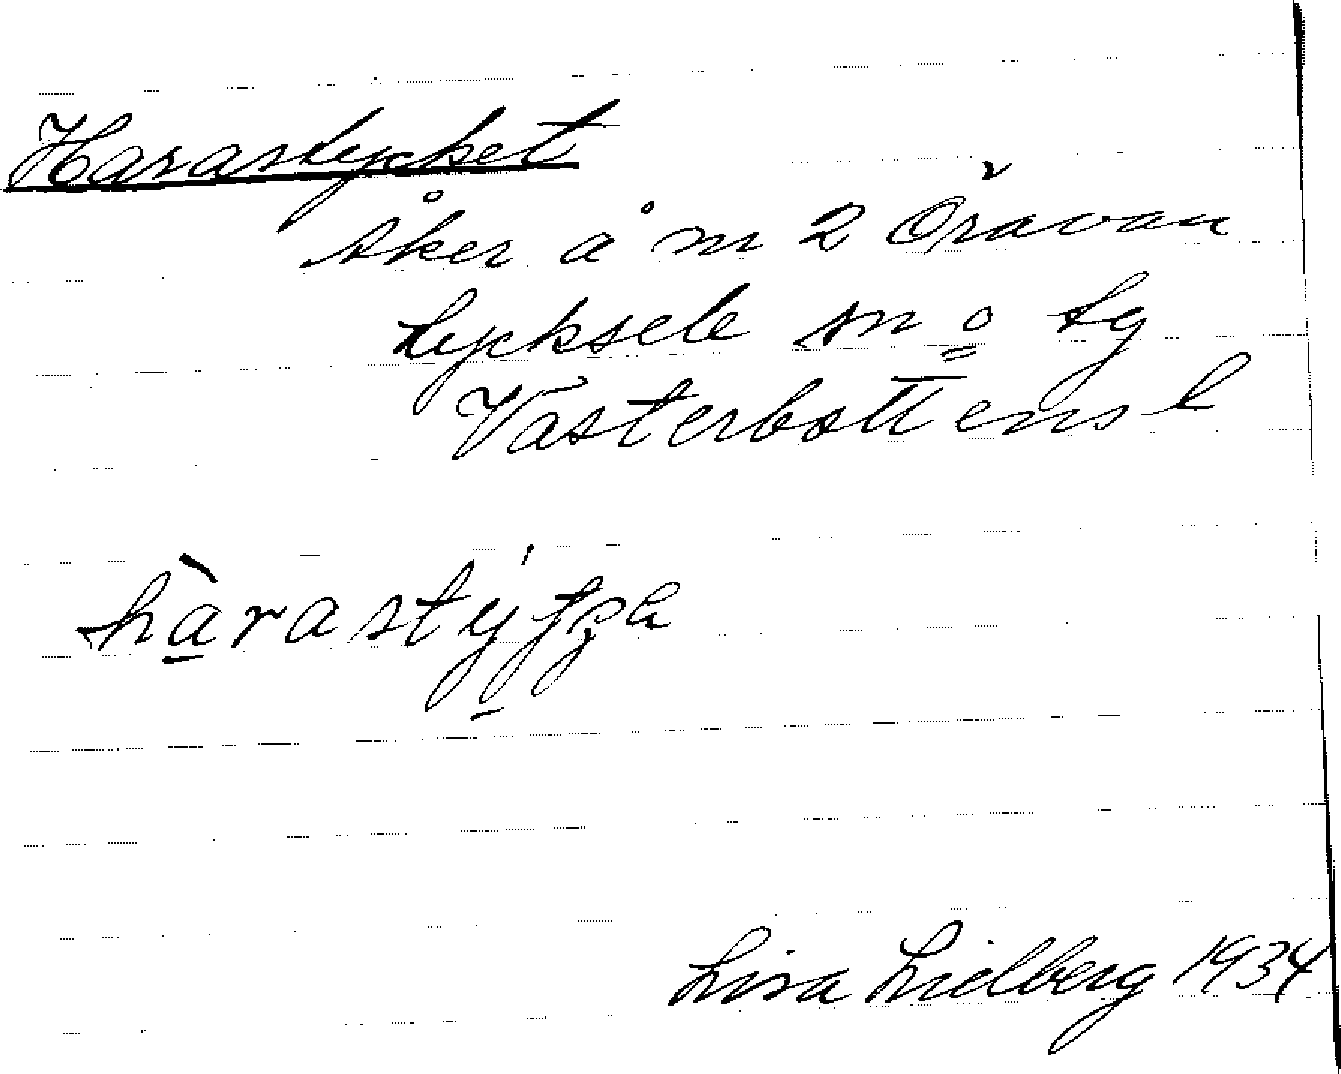 Harastycket
Åker å m 2 Öravan
Lycksele sn o lg
Västerbottens l
hàrastý
Lisa Lidberg 1934